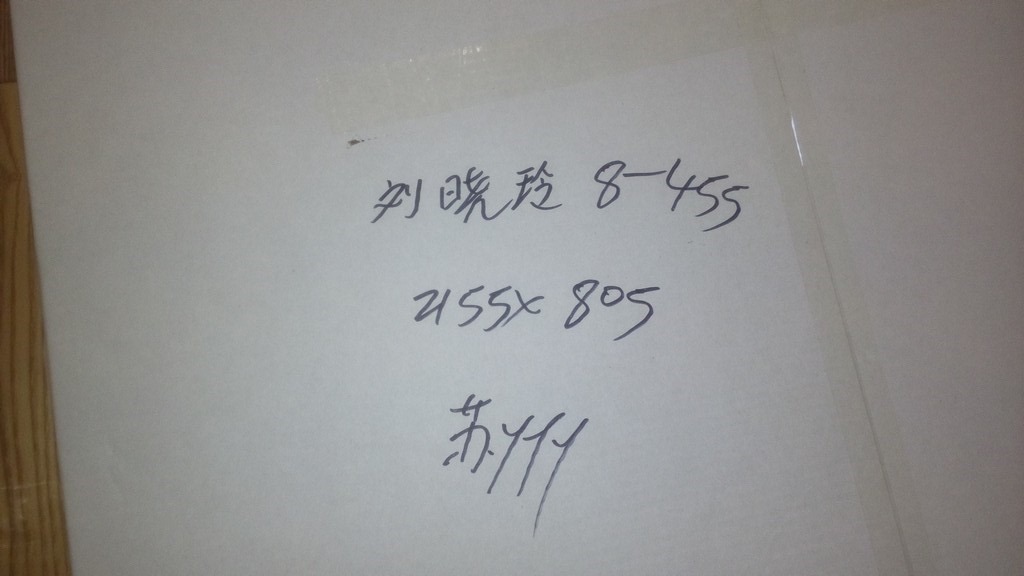 刘晓玲 8-455
2155x 805
苏yyy